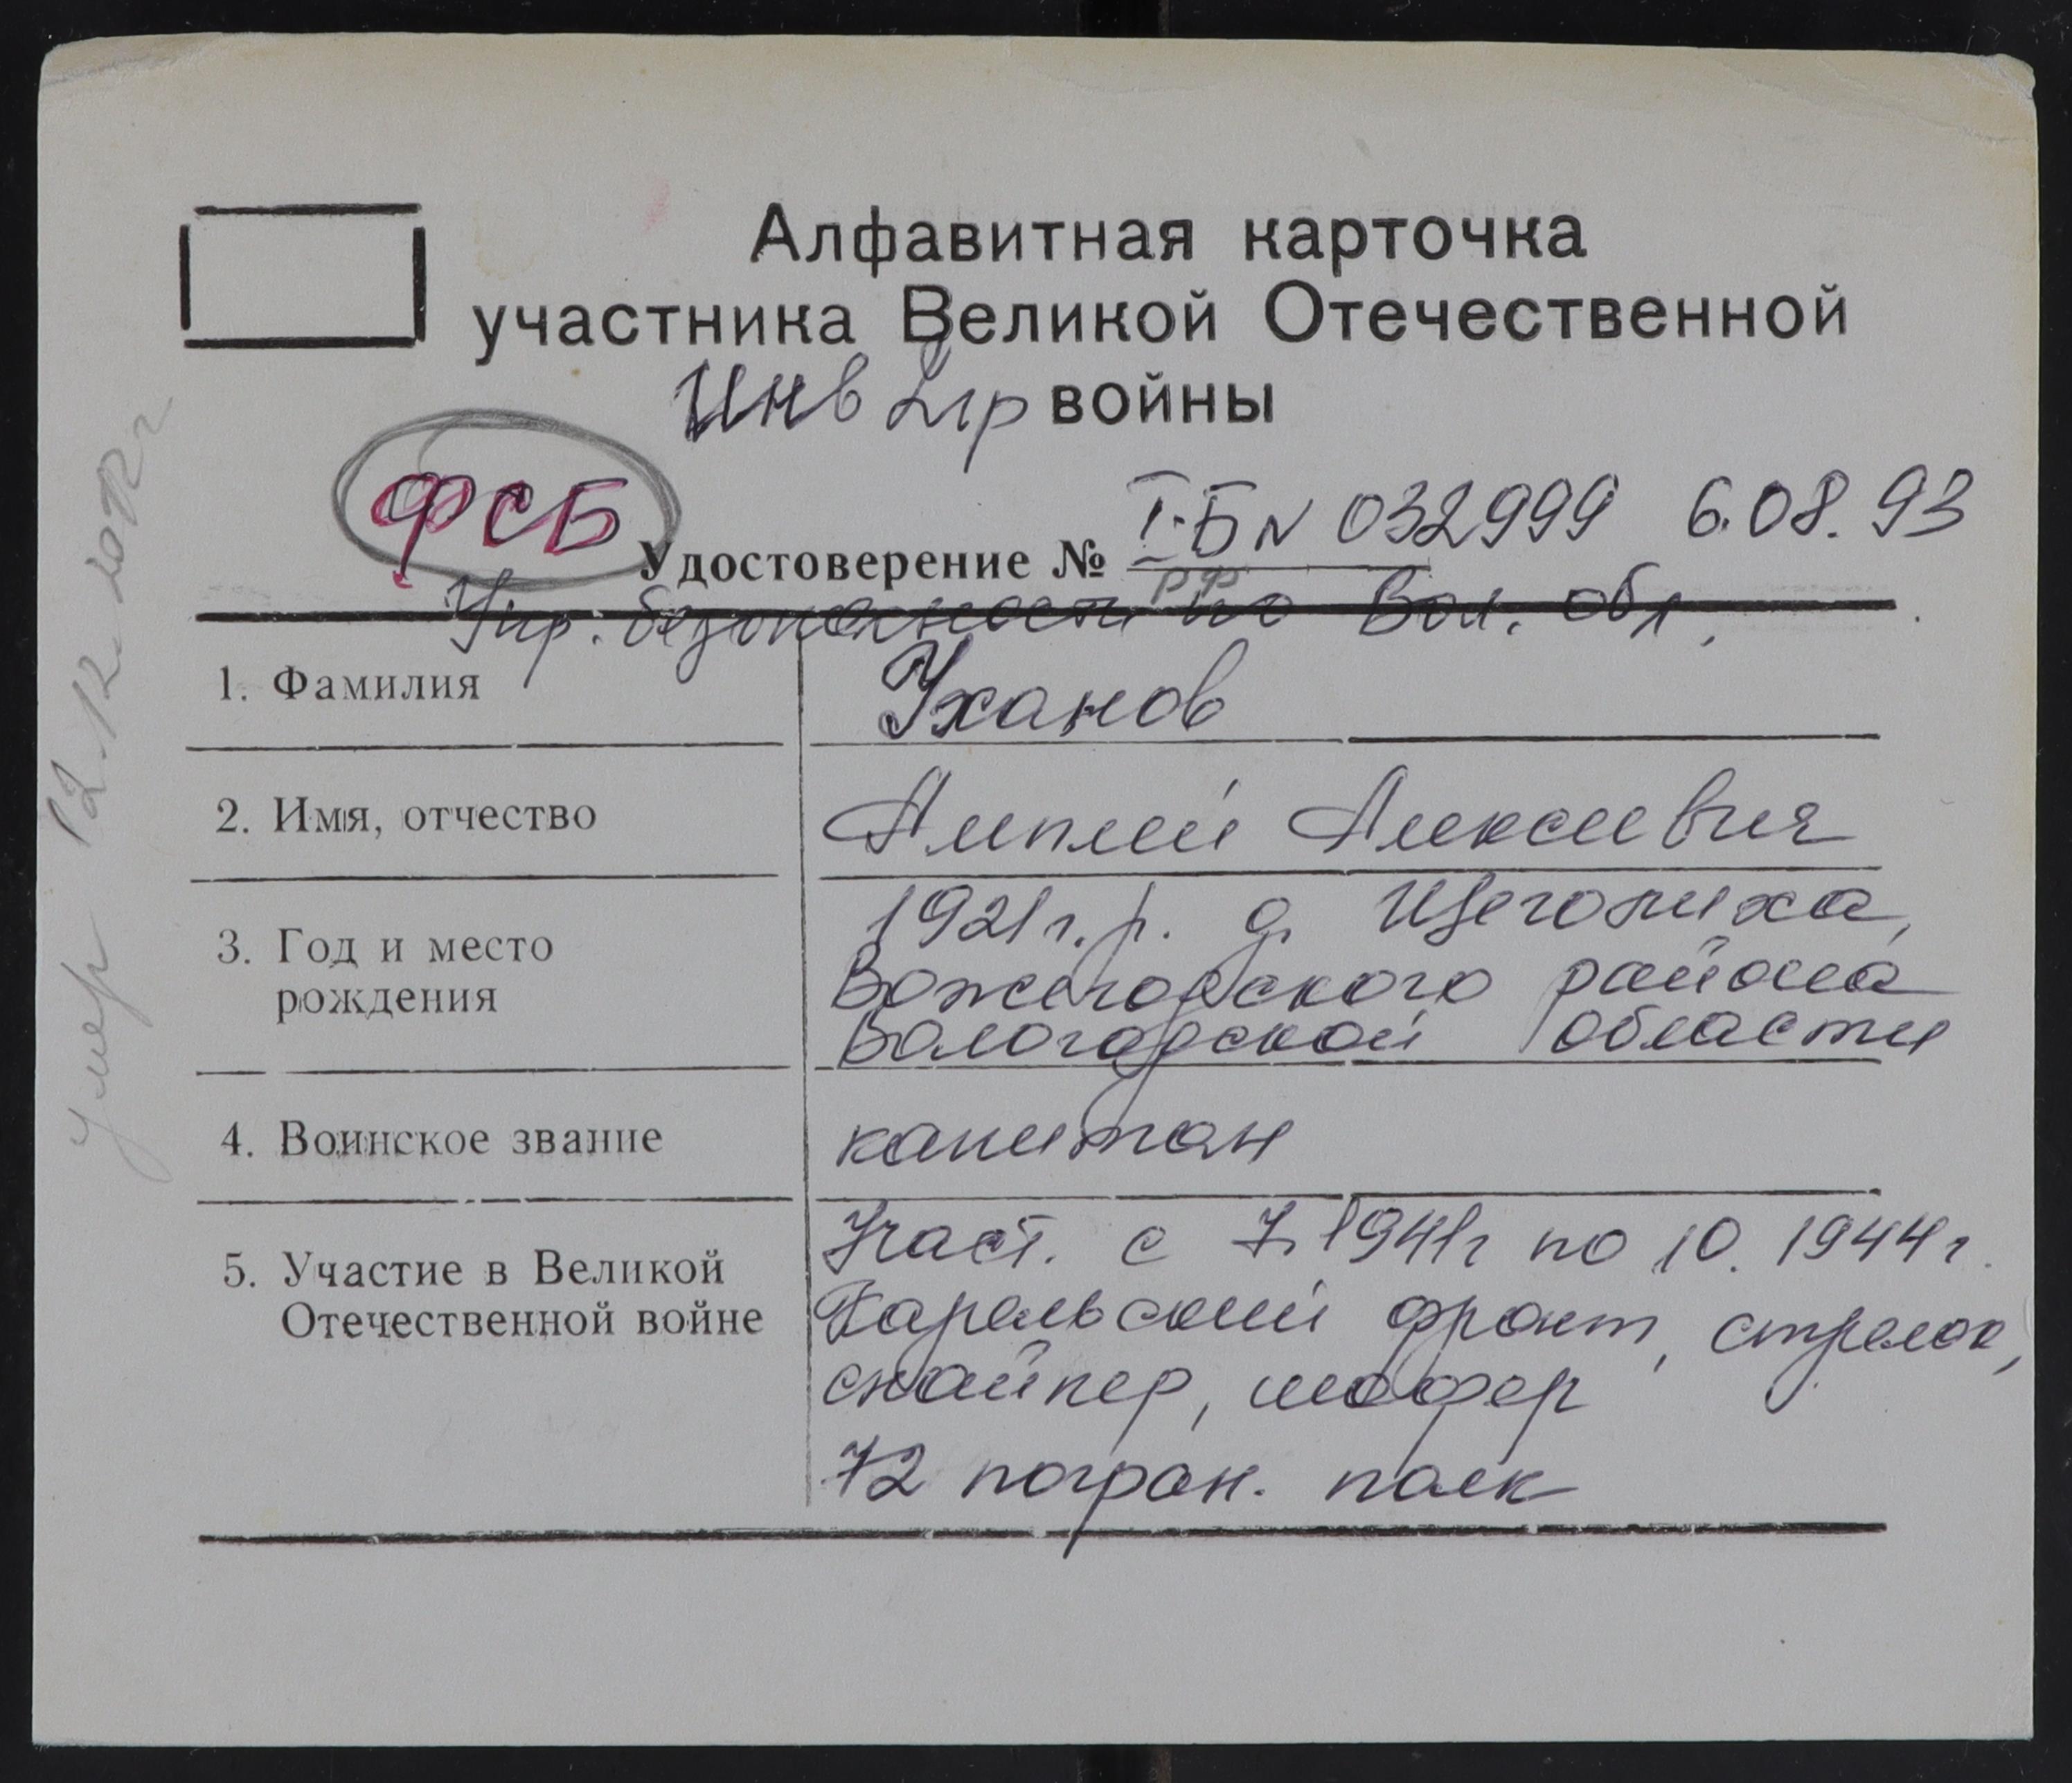 Алфавитная карточка
участника Великой Отечественной
Инв 2гр войны
ФСБ
Удостоверение № I-Б N 032999 6.08.93
РФ
Упр. безопасности по Вол. обл.
1. Фамилия Уханов
2. Имя, отчество Алексеевич
3. Год и место рождения 1921 г.р. д. Щеголиха,
Вожегодского района
Вологодской области
4. Воинское звание капитан
5. Участие в Великой Отечественной войне Участ. с 7.1941г по 10.1944г.
Карельский фронт, стрелок,
снайпер, шофер
72 погран. полк
умер 12.12.2012 г